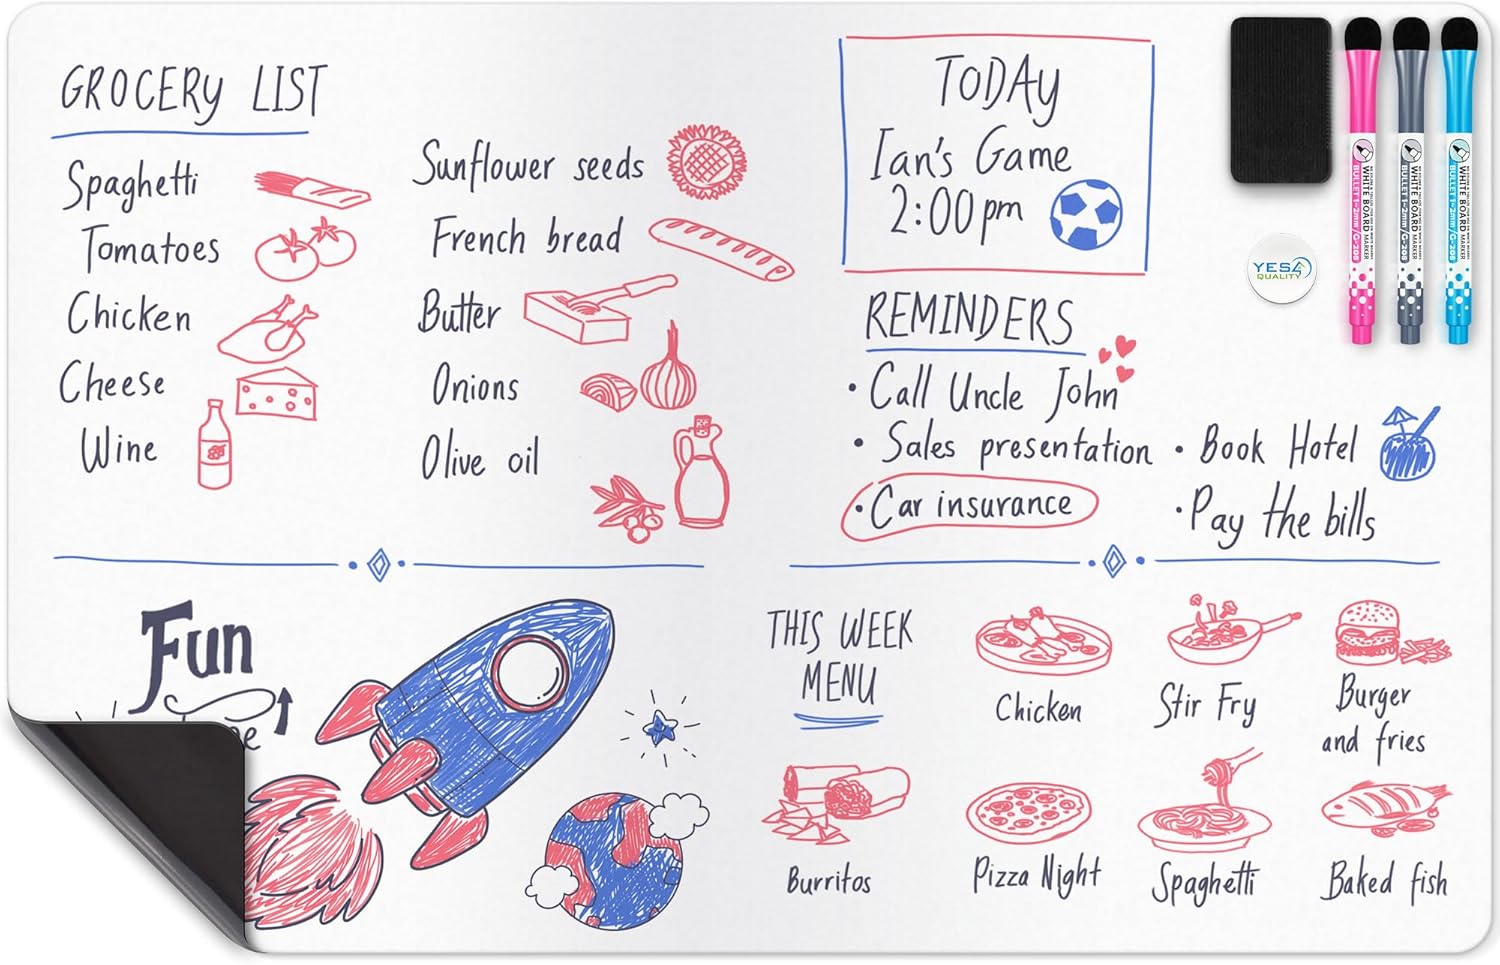 GROCERY LIST
Spaghetti
Tomatoes
Chicken
Cheese
Wine
Sunflower seeds
French bread
Butter
Onions
Olive oil
TODAY
Ian's Game
2:00pm
REMINDERS
• Call Uncle John
• Sales presentation
• Car insurance
• Book Hotel
• Pay the bills
YES4
QUALITY
WHITE BOARD MARKER
BULLET 1-2mm/G-208
WHITE BOARD MARKER
BULLET 1-2mm/G-208
WHITE BOARD MARKER
BULLET 1-2mm/G-208
Fun
THIS WEEK
MENU
Chicken
Stir Fry
Burger
and fries
Burritos
Pizza Night
Spaghetti
Baked fish